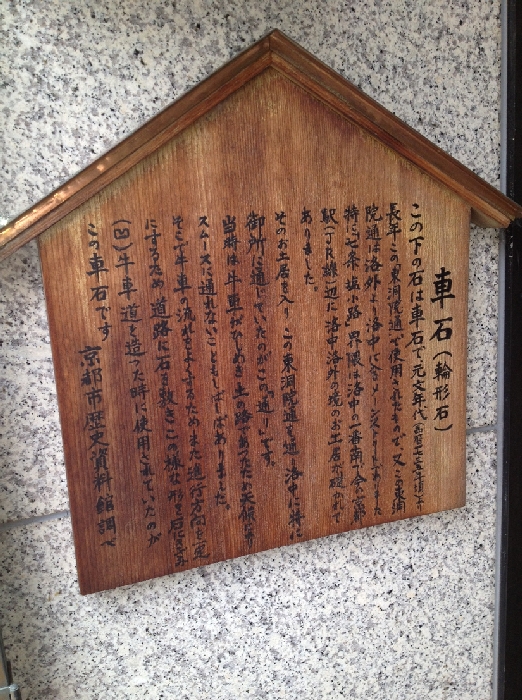 車石（輪形石）
この下の石は車石で元文年代（西暦七三年頃）より
長年この東洞院通で使用されたもので又この東洞
院通は洛外より洛中に入るメーンストリートでありました
特に七条塩小路界隈は洛中の一番南で今の京都
駅（JR線）辺に洛中洛外の境のお土居が築かれて
ありました。
そのお土居を入り この東洞院通を通 洛中に特に
御所に通じていたのがこの「通り」です。
当時は牛車がひしめき土の路であったため天候
スムースに通れないこともしばしばありました。
そこで牛車の流れをよくするためまた進行方向を
にするため道路に石を敷きこの様な形を石にきざみ
（凹）牛車道を造った時に使用されていたのが
この車石です
京都市歴史資料館調べ